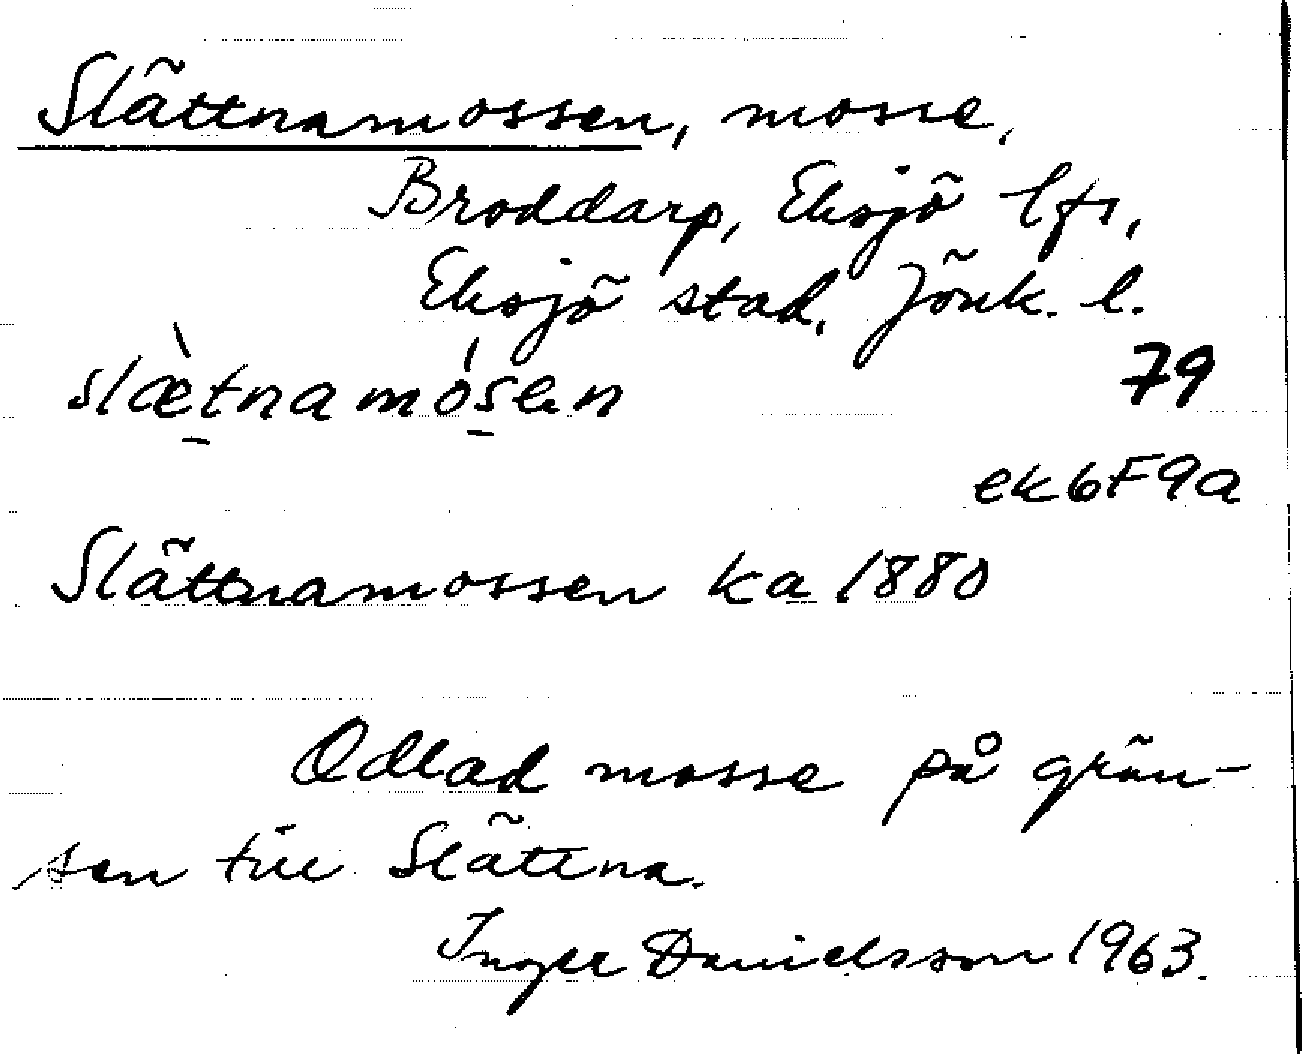 Slättnamossen, mosse,
Broddarp, Eksjö lfs,
Eksjö stad, Jönk. l.
slæ̀tnamósen
79
ek 6F9a
Slättnamossen ka 1880
Odlad mosse på grän-
sen till Slättna.
Inger Danielsson 1963.